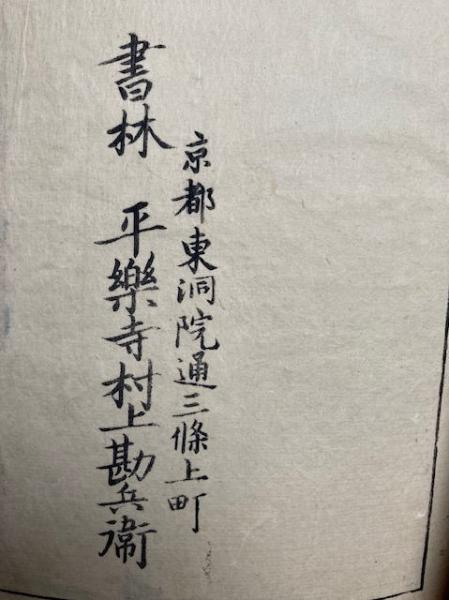 京都東洞院通三條上町
書林　平樂寺村上勘兵衛